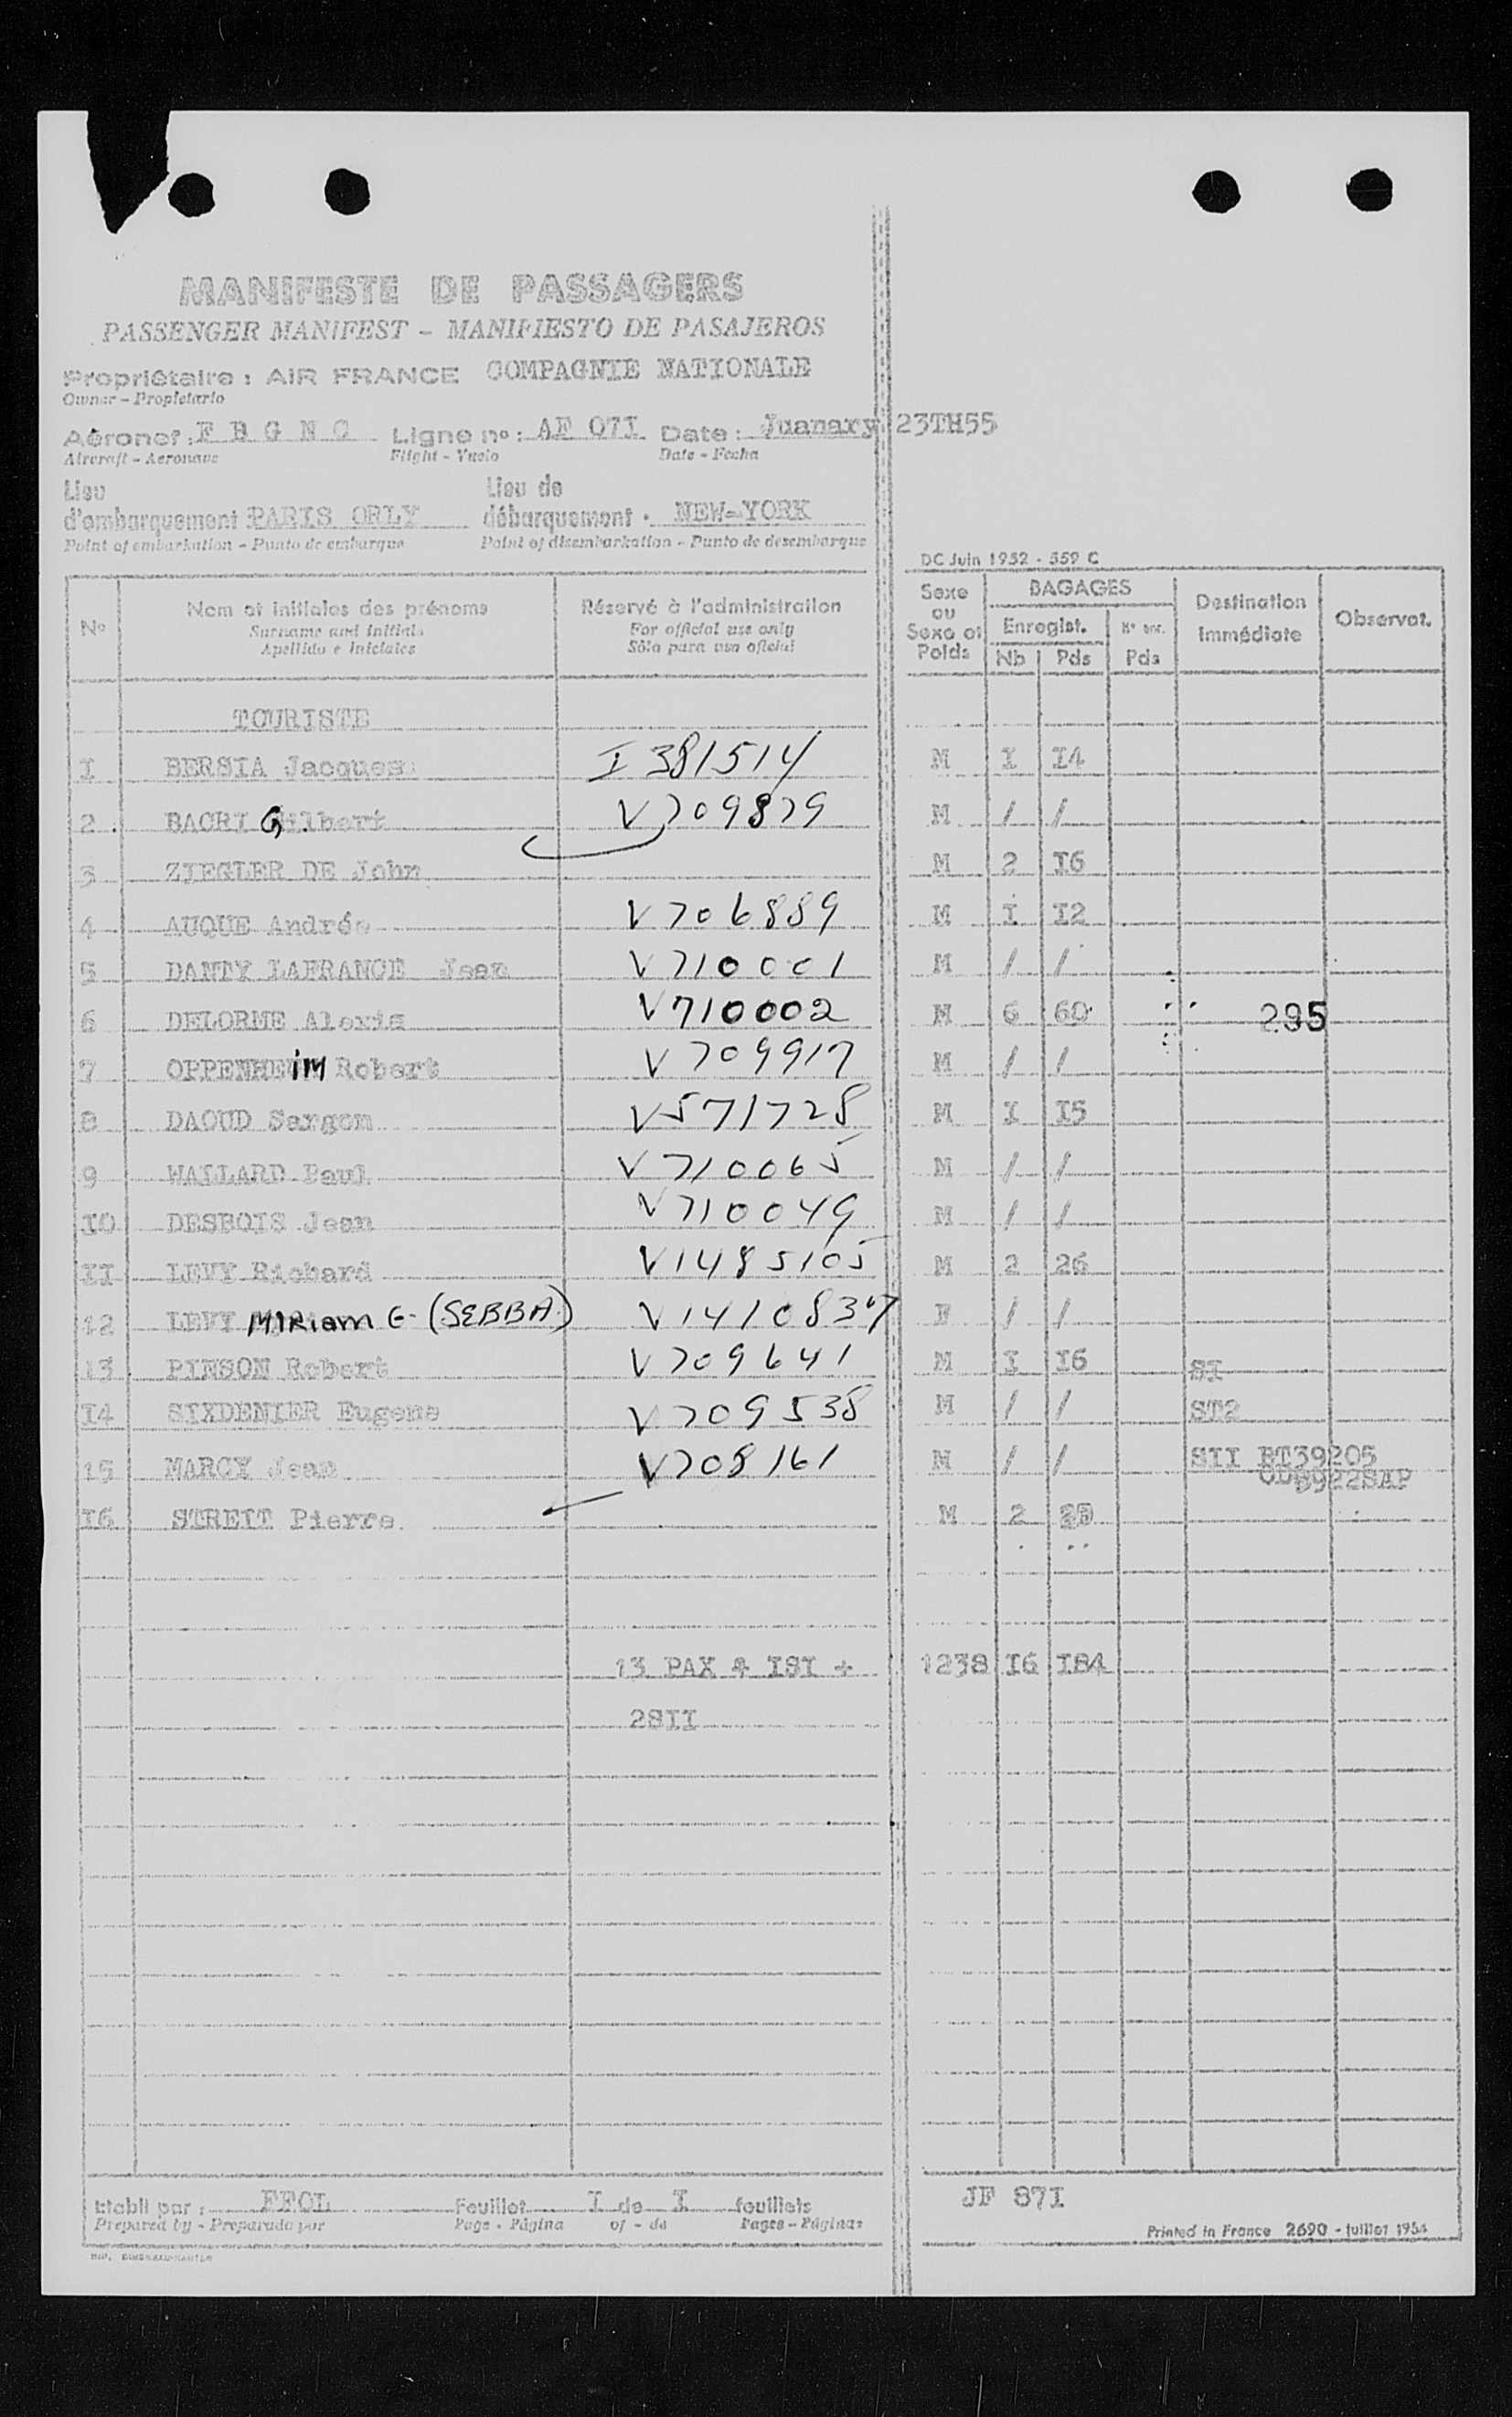 MANIFESTE DE PASSAGERS
PASSENGER MANIFEST - MANIFIESTO DE PASAJEROS
Propriétaire : AIR FRANCE COMPAGNIE NATIONALE
Owner - Propietario
Aéronef : F B G N C Ligne no : AF 07I Date : Juanary 23TH55
Aircraft - Aeronave Flight - Vuelo Date - Fecha
Lieu Lieu de
d'embarquement PARIS ORLY débarquement NEW-YORK
Point of embarkation - Punto de embarque Point of disembarkation - Punto de desembarque
DC Juin 1952 - 559 C
No Nom et initiales des prénoms Réservé à l'administration Sexe ou Sexe et Poids BAGAGES Destination immédiate Observat.
Surname and initials For official use only Enregist.
Apellido e iniciales Sólo para uso oficial Nb Pds Pds
TOURISTE
I BERSIA Jacques I 381514 M I I4
2 BACRI G. V709879 M / /
3 ZIEGLER DE John M 2 I6
4 AUQUE Andrée V706889 M I I2
5 DANTY LAFRANCE Jean V710001 M / /
6 DELORME Alexis V710002 M 6 60 295
7 OPPENHEIM Robert V709917 M / /
8 DAOUD Sargom V571728 M I I5
9 WAILLARD Paul V710065 M / /
IO DESBOIS Jean V710049 M / /
II LEVY Richard V1485105 M 2 26
12 LEVY MIRiam G (SEBBA) V1410837 F / /
13 PINSON Robert V709641 M I I6 SI
I4 SIXDENIER Eugene V709538 M / / ST2
15 MARCY Jean V708161 M / / SII BT39205
B922SAP
I6 STREIT Pierre M 2 25
13 PAX & ISI + 1238 I6 I84
2SII
Etabli par : FFOL Feuillet I de I feuillets JF 87I
Prepared by - Preparado por Page - Página of - de Pages - Páginas Printed in France 2690 - juillet 1954